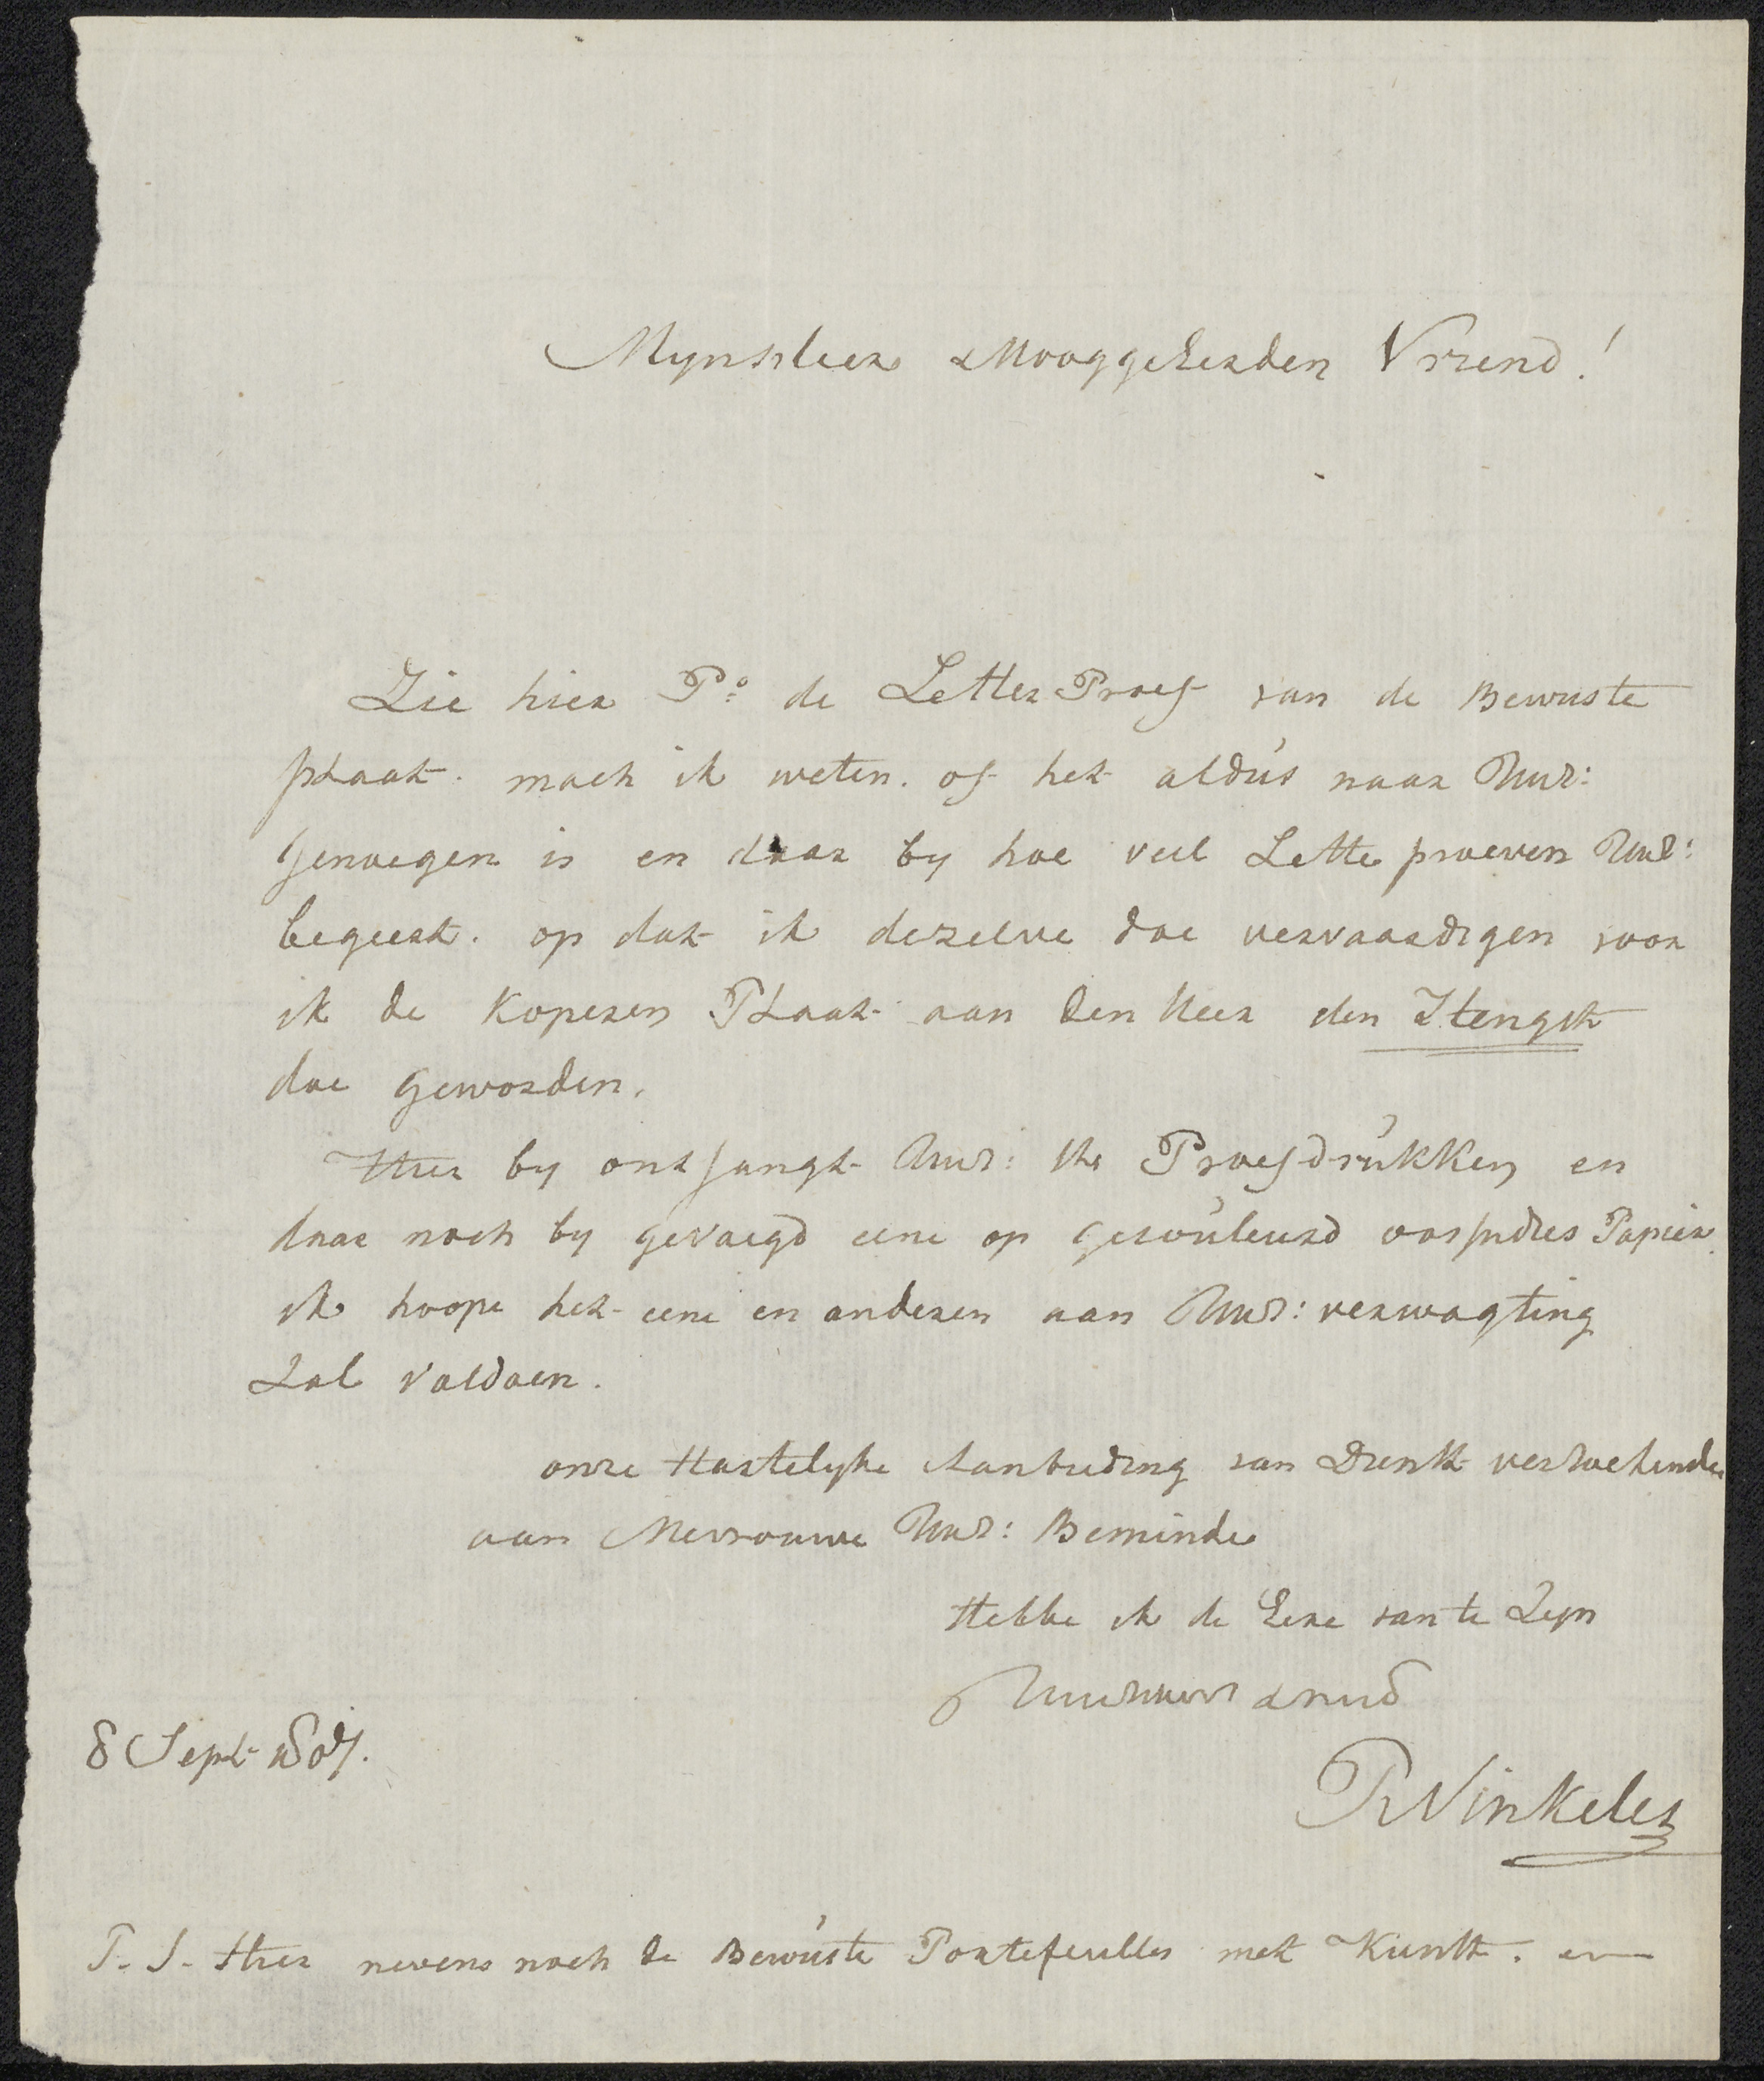 Mynheer & HooggeEerden Vriend!
Zie hier Po: de Letter Proef van de Bewuste
plaat. mach ik weten. of het aldús naar UwE:
genoegen is en daar by hoe veel Letter proeven UwE:
begeert. op dat ik dezelve doe vervaardigen voor
ik de Koperen Plaat aan den Heer den Hengst
doe geworden.
Hier by ontfangt UwE: Proefdrúkken en
daar noch by gevoegd eene op gecoúleurd Papier
ik hoope het eene en anderen aan UwE: verwagting
Zal voldoen.
onze Hartelyke Aanbieding van Dienst verzoekende
aan Mevrouwe UwE: Beminde
Hebbe ik de Eere van te Zyn
8 Sept 1807.
RVinkeles
P. S. Hier nevens noch de Bewúste Portefeulles met Kunst. en